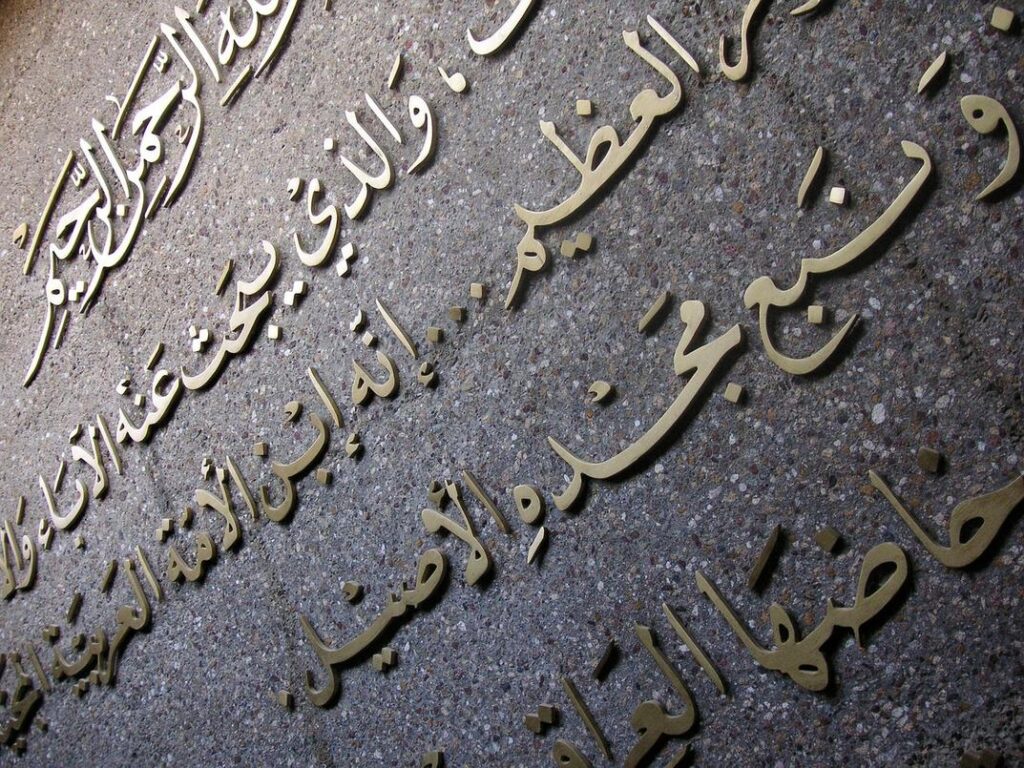 الرَّحمنِ الرَّحِيمِ
وَالذيْ يبحَث عَنْه الآبَاء
العظيم .. إنه ابْن الأمّة العَربيَّة
وَنبَع مَجْدِهِ الأصيْل.
خاضهَا